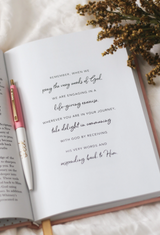 REMEMBER, WHEN WE
pray the very words of God,
WE ARE ENGAGING IN A
life-giving exercise.
WHEREVER YOU ARE IN YOUR JOURNEY,
take delight in communing
WITH GOD BY RECEIVING
HIS VERY WORDS AND
responding back to Him.